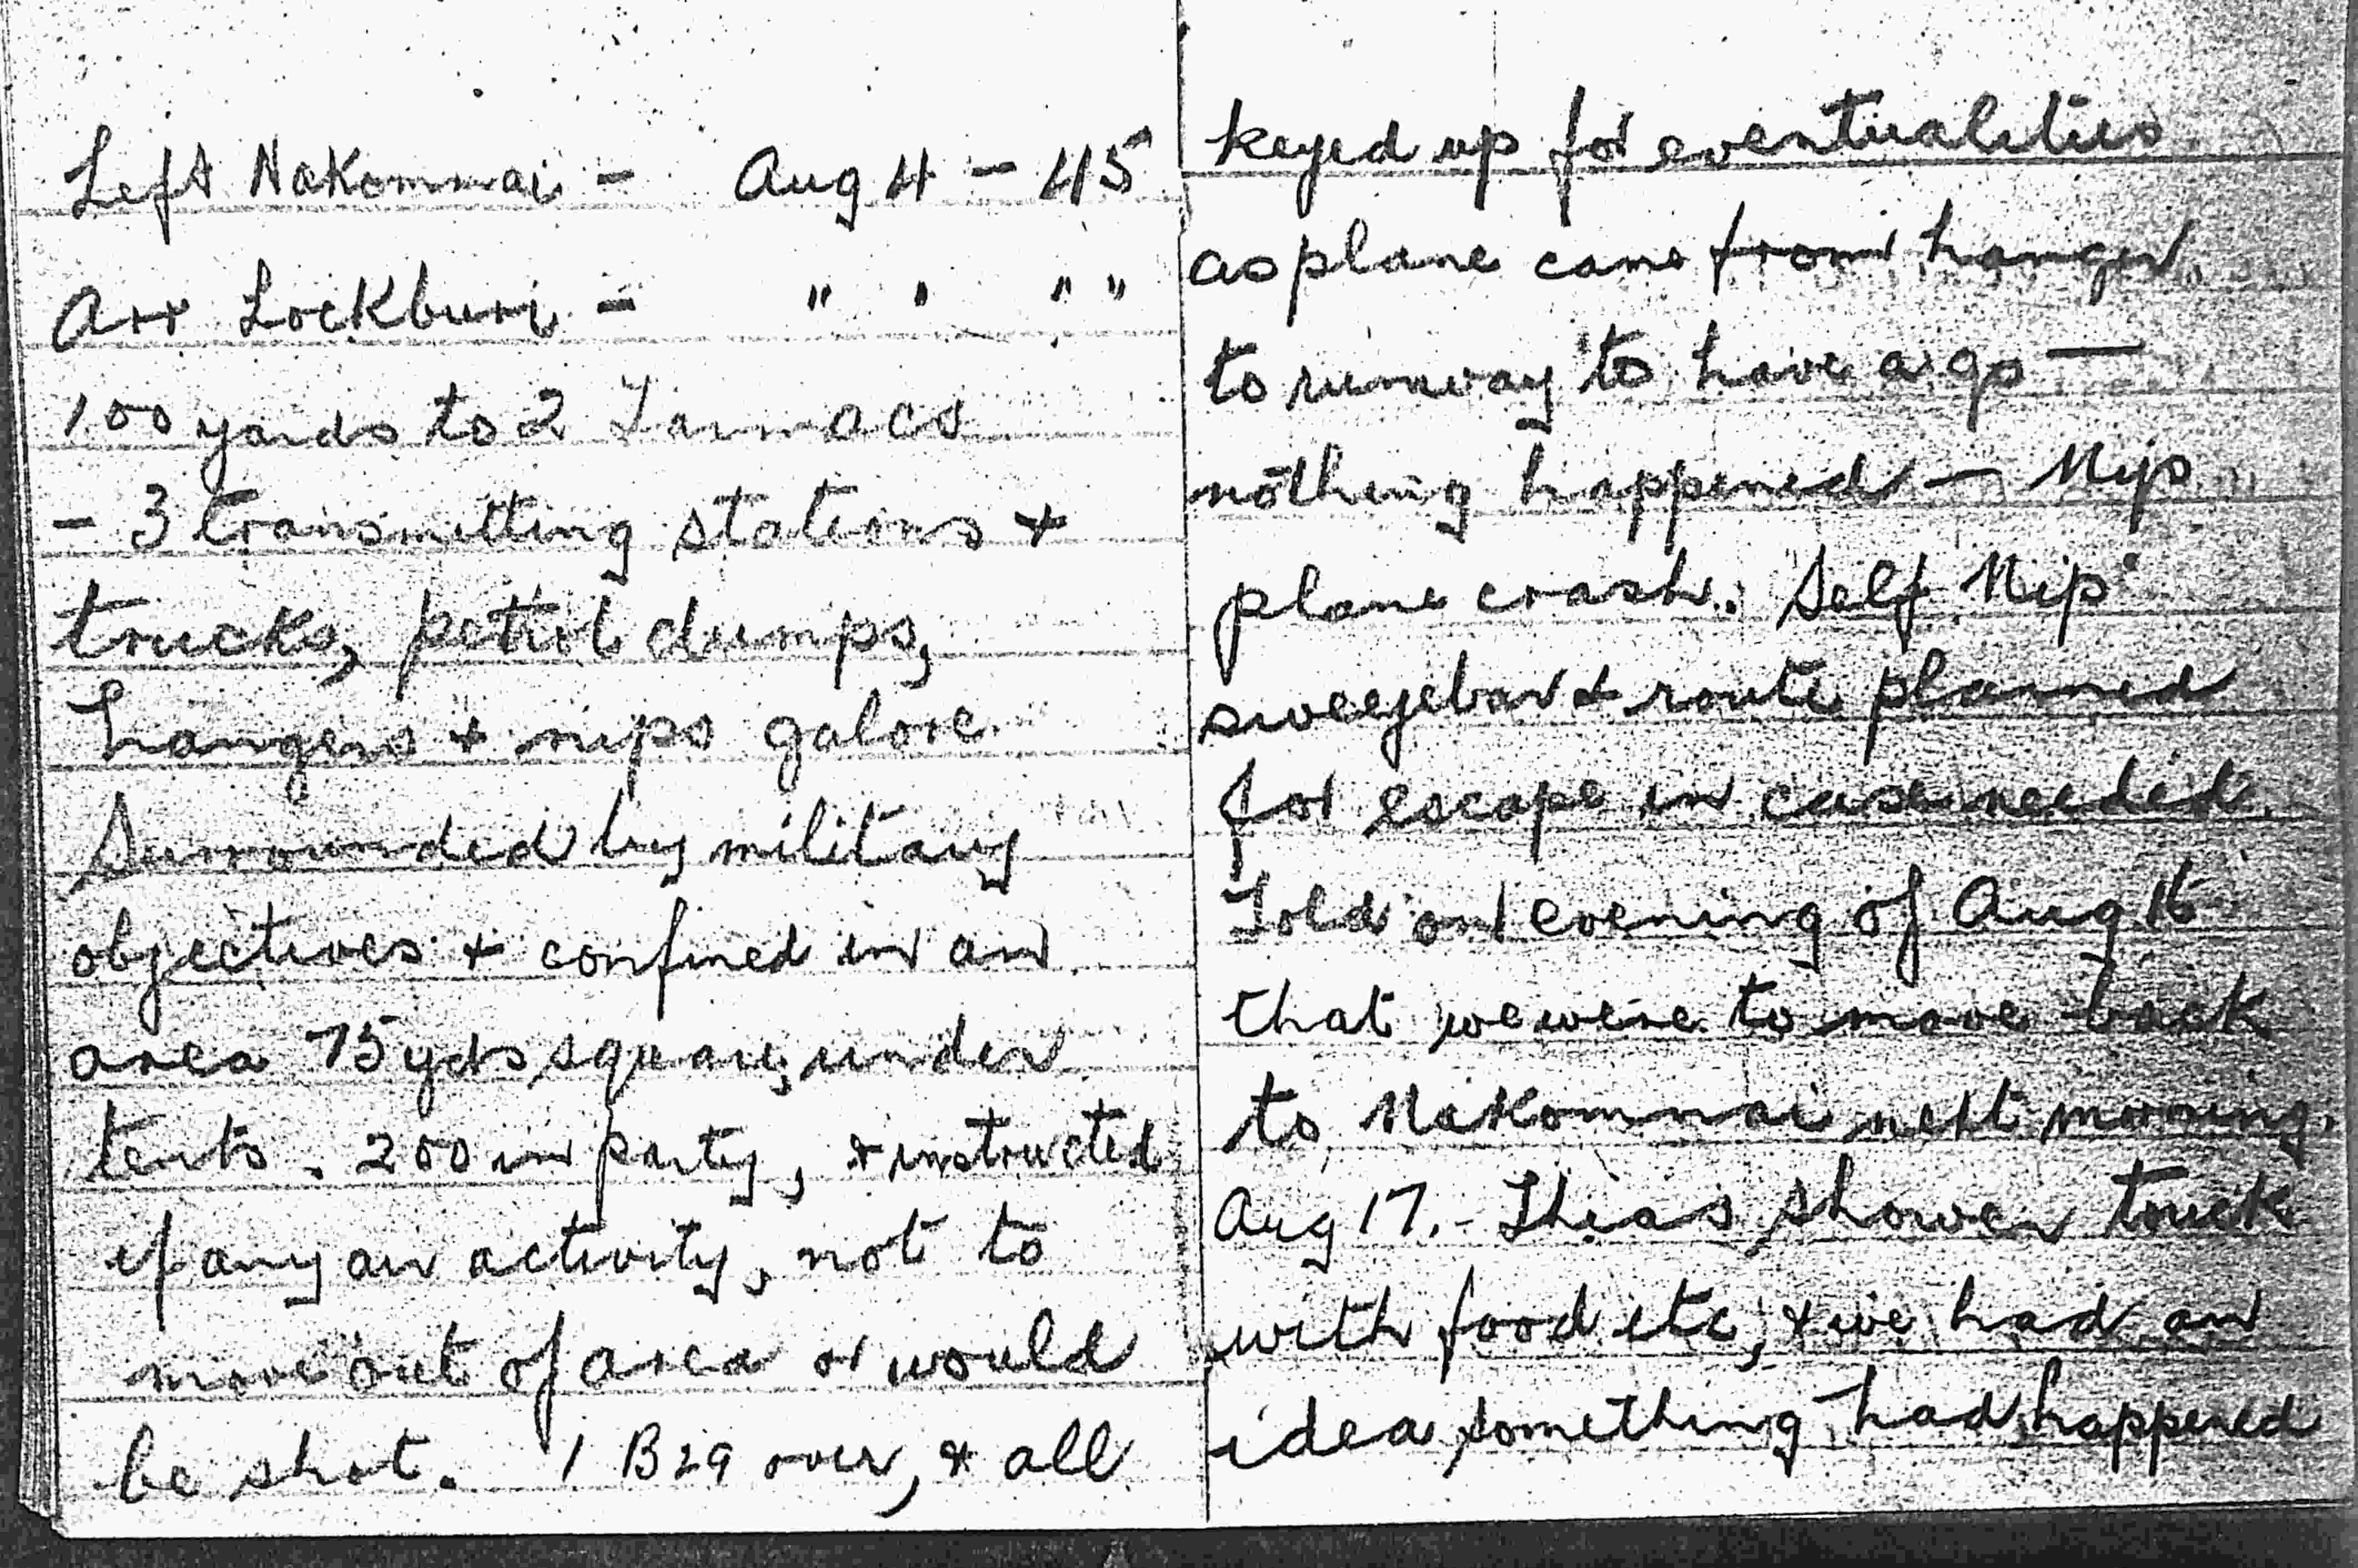 Left Nakommai - Aug 4 - 45
Arr Lockburi - " " " "
100 yards to 2 Tarmacs
- 3 transmitting stations +
trucks, petrol dumps,
hangers + nips galore
Surrounded by military
objectives + confined in an
area 75 yds square, under
tents. 200 in party, + instructed
if any air activity, not to
move out of area or would
be shot. 1 B29 over, + all
keyed up for eventualities
as plane came from hanger
to runway to have a go —
nothing happened - Nip
plane crash. Self Nip
& route planned
for escape in case needed.
Told on evening of Aug 16
that we were to move back
to Nakommai next morning.
Aug 17. - Thias shower truck
with food etc, + we had an
idea something had happened